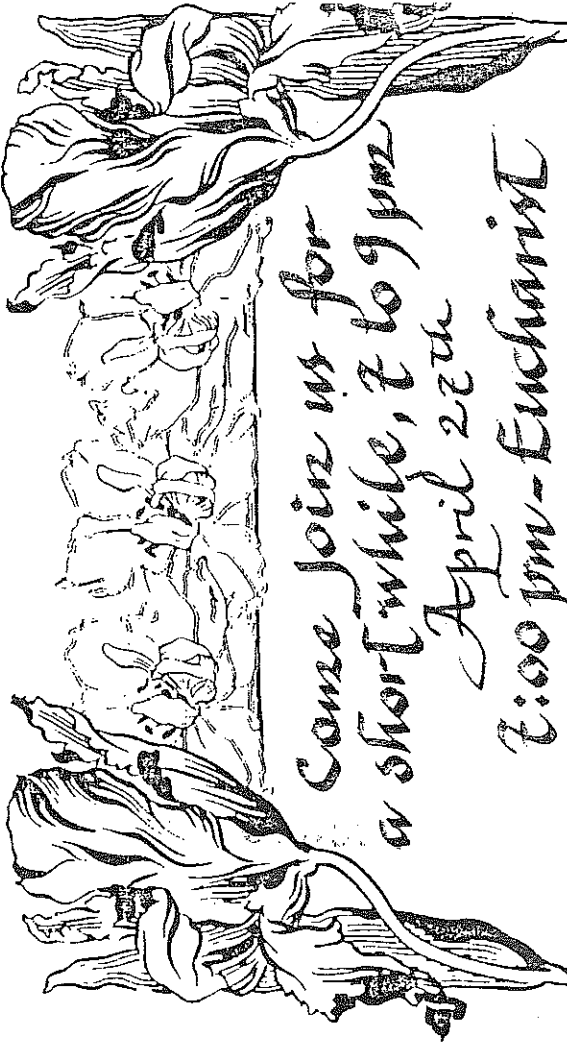 Come Join us for
a short while, 7 to 9 pm
April 27th
7:00 pm - Eucharist